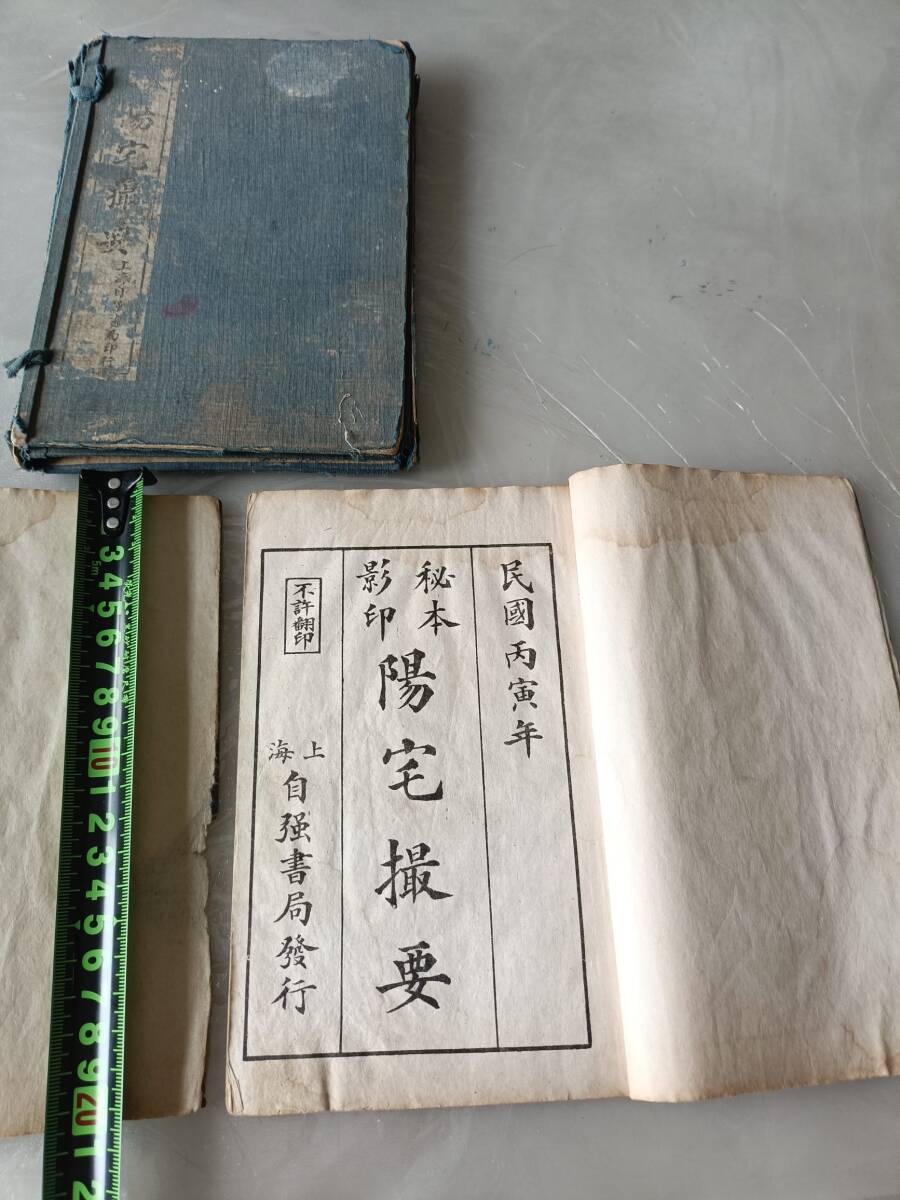 陽宅撮要
上海自强書局印行
民國丙寅年
秘本
影印
陽宅撮要
不許翻印
上海
自强書局發行
5m
3
4
5
6
7
8
9
10
1
2
3
4
5
6
7
8
9
20
1
2